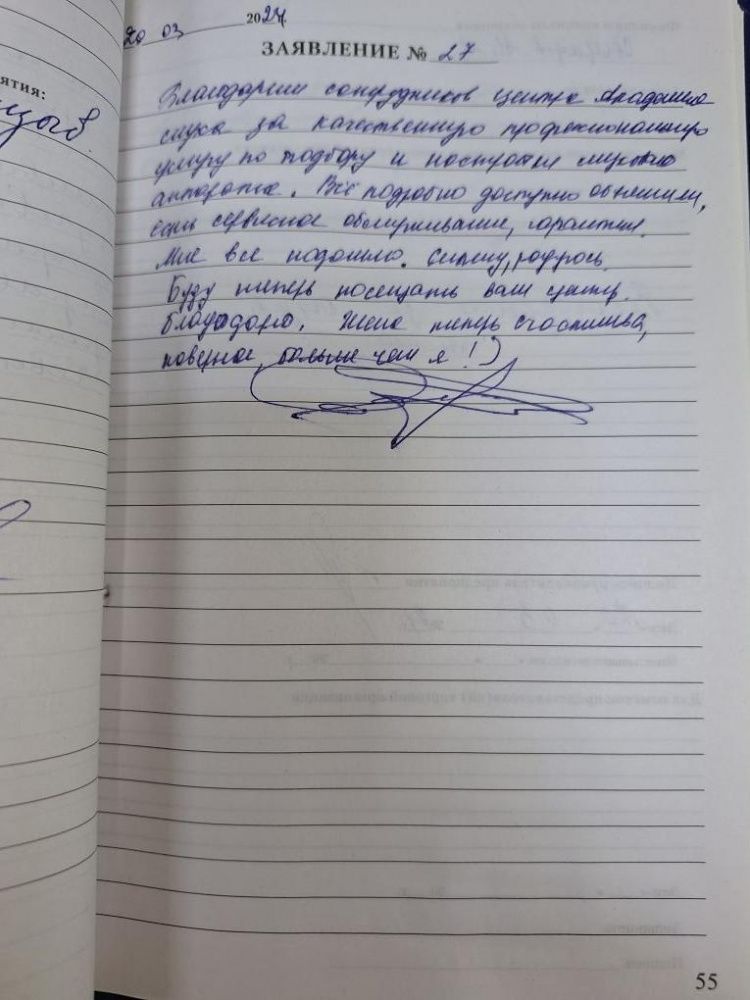 20 03 2024.
ЗАЯВЛЕНИЕ № 27
ятия:
Благодарим сотрудников центра Академия
слуха за качественную профессиональную
услугу по подбору и настройке слухового
аппарата. Всё подробно доступно объяснили,
есть сервисное обслуживание, гарантия.
Мне все подошло. Слышу, радуюсь.
Буду теперь посещать ваш центр.
Благодарю. Жена теперь счастлива,
наверное, больше чем я!)
55